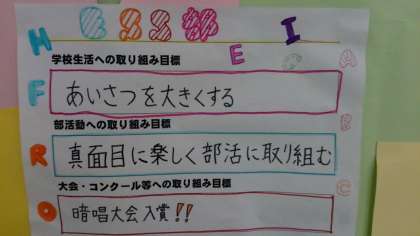 ESS部
H E I
学校生活への取り組み目標
F A
あいさつを大きくする
部活動への取り組み目標
B
R 真面目に楽しく部活に取り組む
大会・コンクール等への取り組み目標
C
O 暗唱大会入賞!!